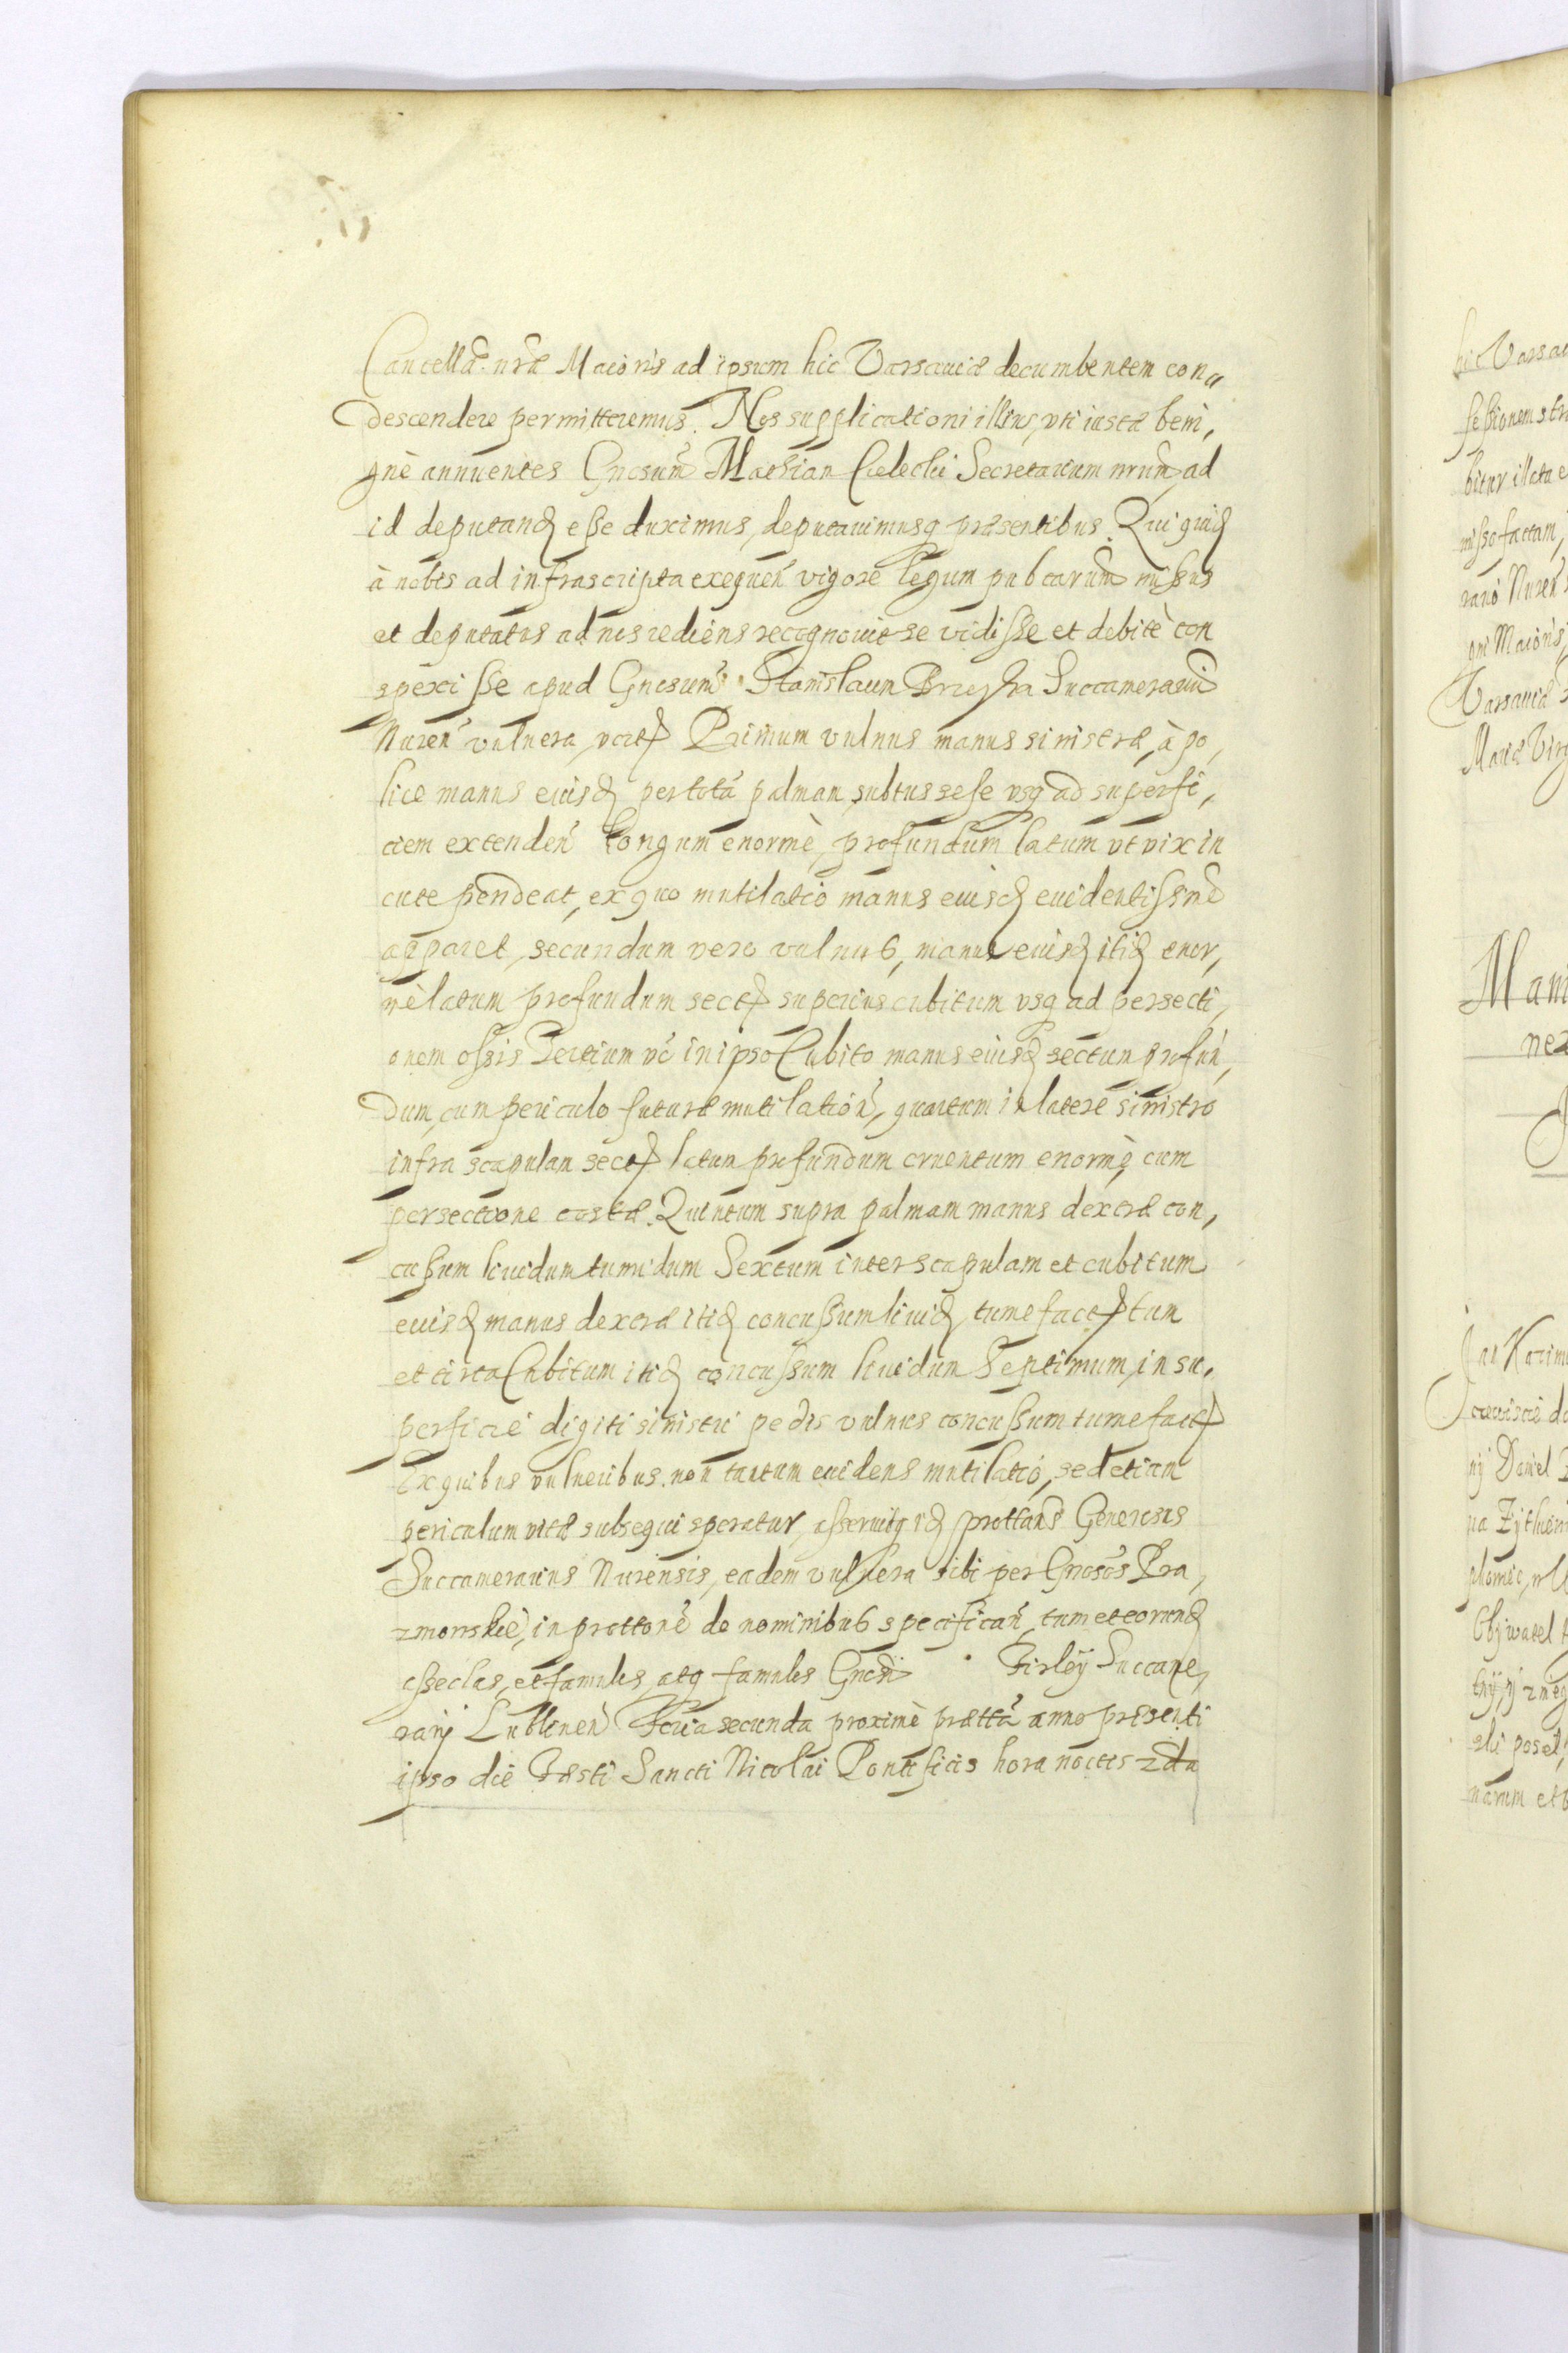 Cancellæ nræ Maioris ad ipsum hic Varsaviæ decumbentem con„
descendere permitteremus. Nos supplicationi illius, vti iustæ beni,
gnè annuentes Gnosum Mathian Secretarium nrum, ad
id deputand esse duximus, deputauimusq præsentibus. Qui quid
à nobis ad infrascripta exequen vigore legum pubcarum missus
et deputatus ad nos rediens recognouit se vidisse et debitè con
spexisse apud Gnosum Stanislaum Succamerariu
Nuren vulnera, Primum vulnus manus sinistræ, à po,
lice manus eiusd per totã palmam, subtus sese vsq ad superfi,
ciem extenden longum enormè, profundum latum vt vix in
cute pendeat, ex quo mutilatio manus eiusd euidentissime
apparet, secundum vero vulnus, manus eiusd itid enor,
mè latum profundum sect superius cubitum vsq ad persecti,
onem ossis Tertium vo in ipso Cubito manus eiusd sectum profun,
dum, cum periculo futuræ mutilation, quartum in latere sinistro
infra scapulam sect latum profundum cruentum enormè, cum
persectione costæ. Quintum supra palmam manus dexteræ con,
cussum liuidum tumidum Sextum inter scapulam et cubitum
eiusd manus dextræ itid concussum liuid, tumefact tum
et circa Cubitum itid concussum liuidum Septimum, in su,
perficie digiti sinistri pedis vulnus concussum tumefact
Ex quibus vulneribus non tantum euidens mutilatio, sed etiam
periculum vitæ subsequi speratur, asseruitq id prottans Generosus
Succamerarius Nurensis, eadem vulnera sibi per Gnosos Pra,
zmowskie, in prottone de nominibus specifican, tum et eorund
asseclas, et famulos, atq famulos Gnosi Firleÿ Succame,
rarÿ Lublinen Feria secunda proximè prættã anno præsenti
ipso die Festi Sancti Nicolai Pontificis hora noctis 2da
hic Varsau
Mariæ Virg
Jan Kazim